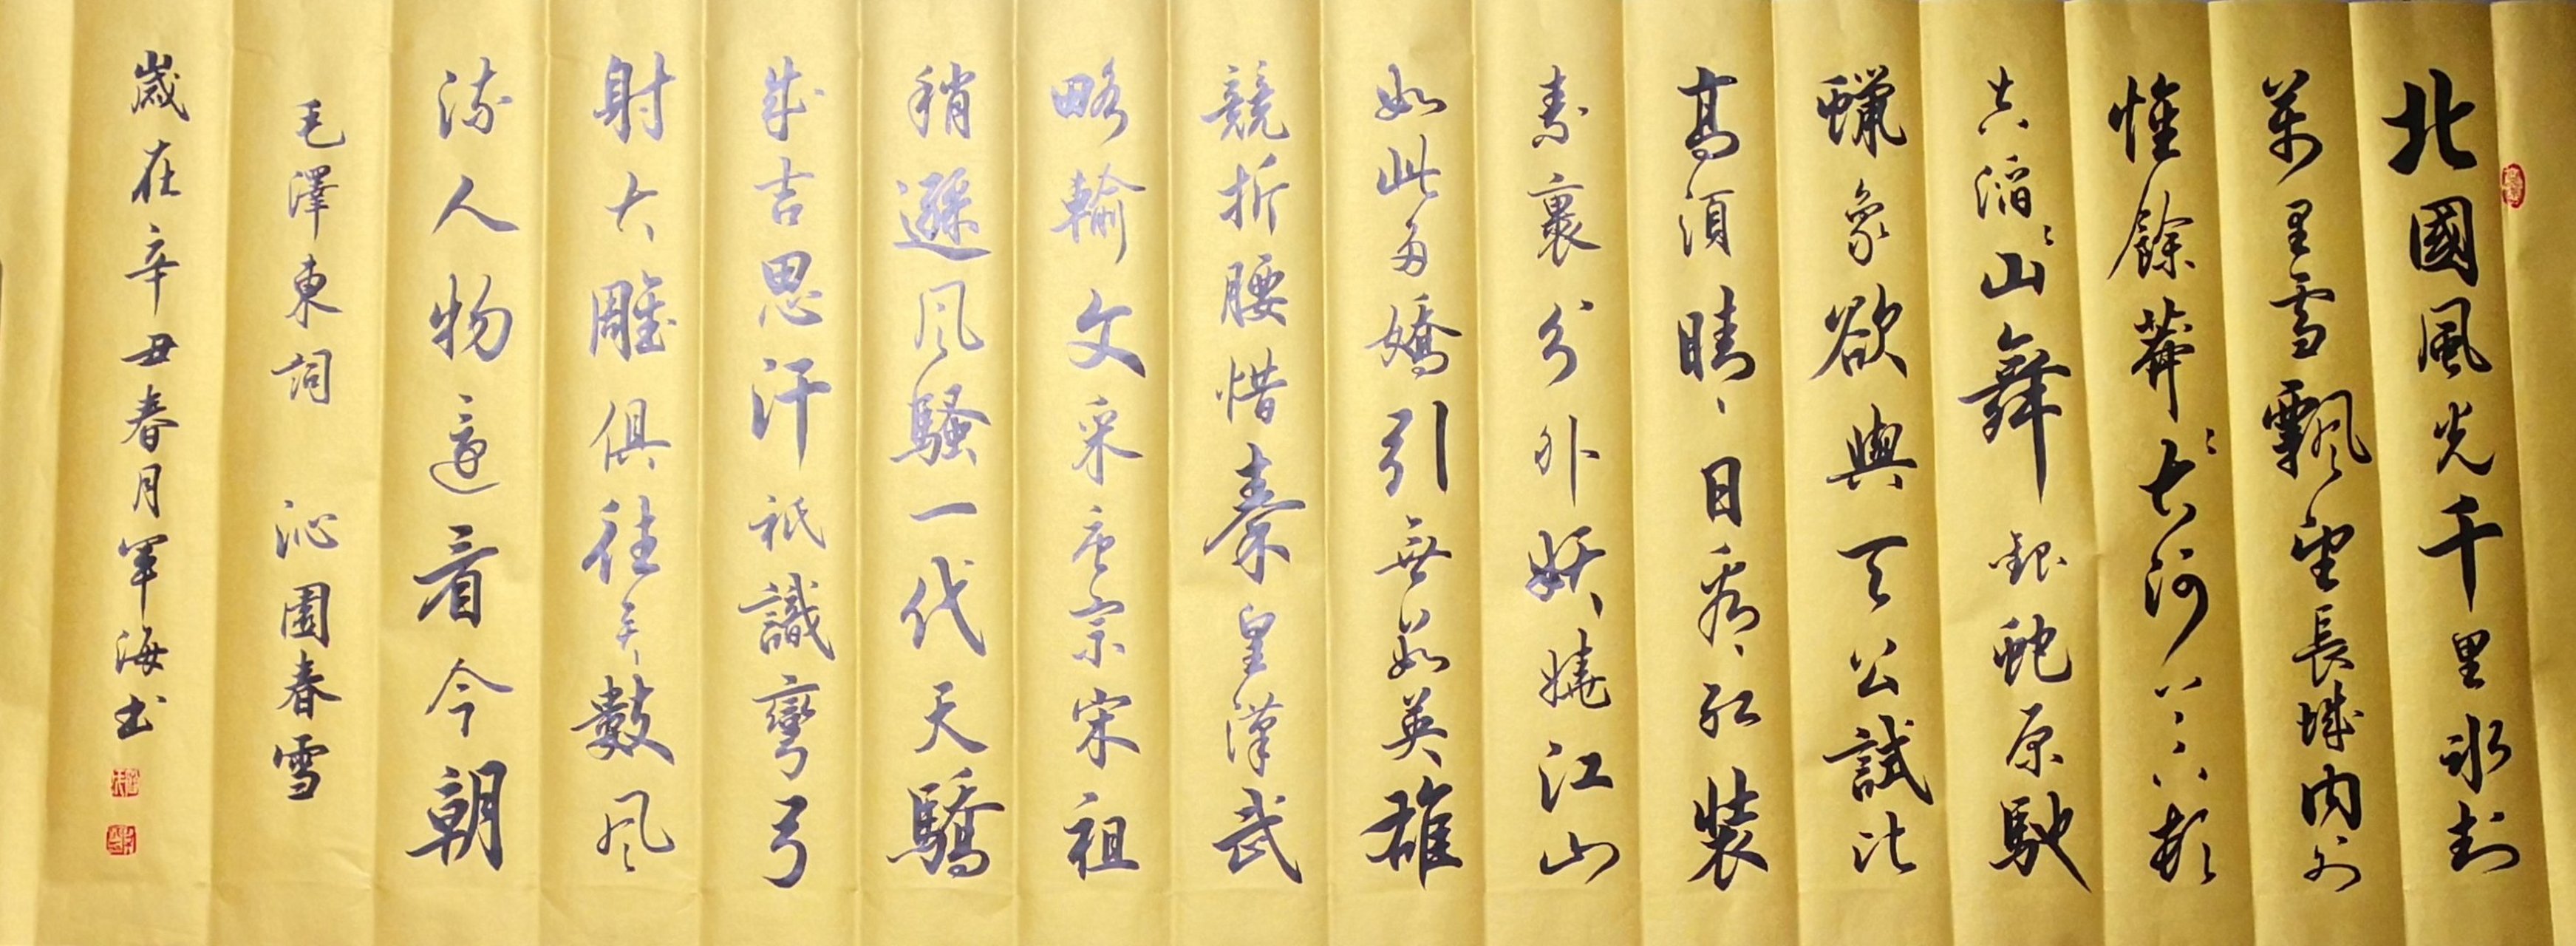 北國風光千里冰封
萬里雪飄望長城內外
惟餘莽〻大河上下頓
失滔〻山舞銀蛇原馳
蠟象欲與天公試比
高須晴日看紅裝
素裹分外妖嬈江山
如此多嬌引無數英雄
競折腰惜秦皇漢武
略輸文采唐宗宋祖
稍遜風騷一代天驕
成吉思汗祇識彎弓
射大雕俱往矣數風
流人物還看今朝
毛澤東詞 沁園春雪
歲在辛丑春月軍海書